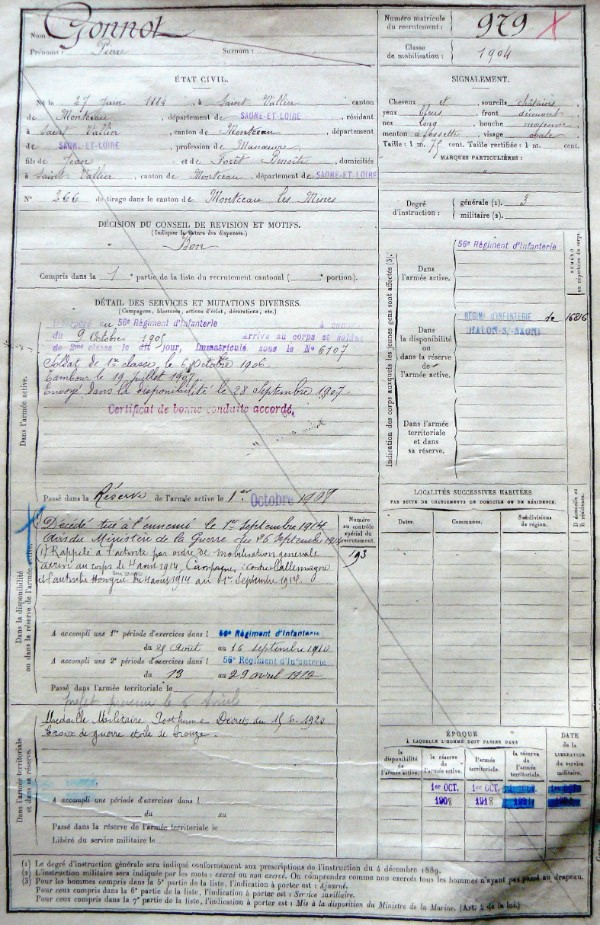 Nom Gonnot
Prénoms : Pierre Surnom :
Numéro matricule du recrutement : 979
Classe de mobilisation : 1904
ÉTAT CIVIL.
Né le 27 Juin 1884 à Saint Vallier canton
de Montceau, département de SAONE-ET-LOIRE, résidant
à Saint Vallier, canton de Montceau, département
de SAONE-ET-LOIRE, profession de Manœuvre
fils de Jean et de Forêt Benoite, domiciliés
à Saint Vallier, canton de Montceau, département de SAONE-ET-LOIRE
N° 266 de tirage dans le canton de Montceau les Mines
SIGNALEMENT.
Cheveux et sourcils châtains
yeux front découvert
nez long, bouche moyenne
menton à fossette, visage ovale
Taille : 1 m. 75 cent. Taille rectifiée : 1 m. cent.
MARQUES PARTICULIÈRES :
Degré d'instruction :
générale (1). 3
militaire (2).
DÉCISION DU CONSEIL DE REVISION ET MOTIFS.
(Indiquer la nature des dispenses.)
Bon
Compris dans la 1 partie de la liste du recrutement cantonal ( portion).
DÉTAIL DES SERVICES ET MUTATIONS DIVERSES.
(Campagnes, blessures, actions d'éclat, décorations, etc.)
Incorporé au 56e Régiment d'Infanterie à compter
du 9 Octobre 1905 arrivé au corps et soldat
de 2me classe le dit jour, Immatriculé sous le N° 6107
Soldat de 1re classe le 6 Octobre 1906
Tambour le 19 juillet 1907
Envoyé dans la disponibilité le 28 Septembre 1907
Certificat de bonne conduite accordé.
Dans l'armée active.
Passé dans la Réserve de l'armée active le 1er Octobre 1907
Indication des corps auxquels les jeunes gens sont affectés (3).
Dans l'armée active.
56e Régiment d'Infanterie
Dans la disponibilité ou dans la réserve de l'armée active.
RÉGIMt D'INFANTERIE de
CHALON-S.-SAONE
Dans l'armée territoriale et dans sa réserve.
Décédé tué à l'ennemi le 1er Septembre 1914
avis du Ministère de la Guerre du 26 Septembre 1914
(1) Rappelé à l'activité par ordre de mobilisation générale
arrivé au corps le 4 août 1914. Campagne : contre l'Allemagne
et l'Autriche Hongrie du 4 août 1914 au 1er Septembre 1914.
Numéro au contrôle spécial du recrutement.
193
Dans la disponibilité ou dans la réserve de l'armée active.
A accompli une 1re période d'exercices dans l 56e Régiment d'Infanterie
du 25 Août au 16 septembre 1910
A accompli une 2e période d'exercices dans l 56e Régiment d'Infanterie
du 13 au 29 avril 1912
Passé dans l'armée territoriale le
LOCALITÉS SUCCESSIVES HABITÉES.
PAR SUITE DE CHANGEMENTS DE DOMICILE OU DE RÉSIDENCE.
Dates. Communes. Subdivisions de région. D domicile ou R résidence.
Médaille Militaire Posthume Décret du 15-6-1920
Croix de guerre étoile de bronze.
Dans l'armée territoriale et dans sa réserve.
A accompli une période d'exercices dans l
du au
Passé dans la réserve de l'armée territoriale le
Libéré du service militaire le
ÉPOQUE
À LAQUELLE L'HOMME DOIT PASSER DANS
la disponibilité de l'armée active. la réserve de l'armée active. l'armée territoriale. la réserve de l'armée territoriale.
DATE de la LIBÉRATION du service militaire.
1er OCT. 1908
1er OCT. 1918
(1) Le degré d'instruction générale sera indiqué conformément aux prescriptions de l'instruction du 4 décembre 1889.
(2) L'instruction militaire sera indiquée par les mots : exercé ou non exercé. On comprendra comme non exercés tous les hommes n'ayant pas passé au drapeau.
(3) Pour les hommes compris dans la 5e partie de la liste, l'indication à porter est : Ajourné.
Pour ceux compris dans la 6e partie de la liste, l'indication à porter est : Service auxiliaire.
Pour ceux compris dans la 7e partie de la liste, l'indication à porter est : Mis à la disposition du Ministre de la Marine. (Art. 4 de la loi.)